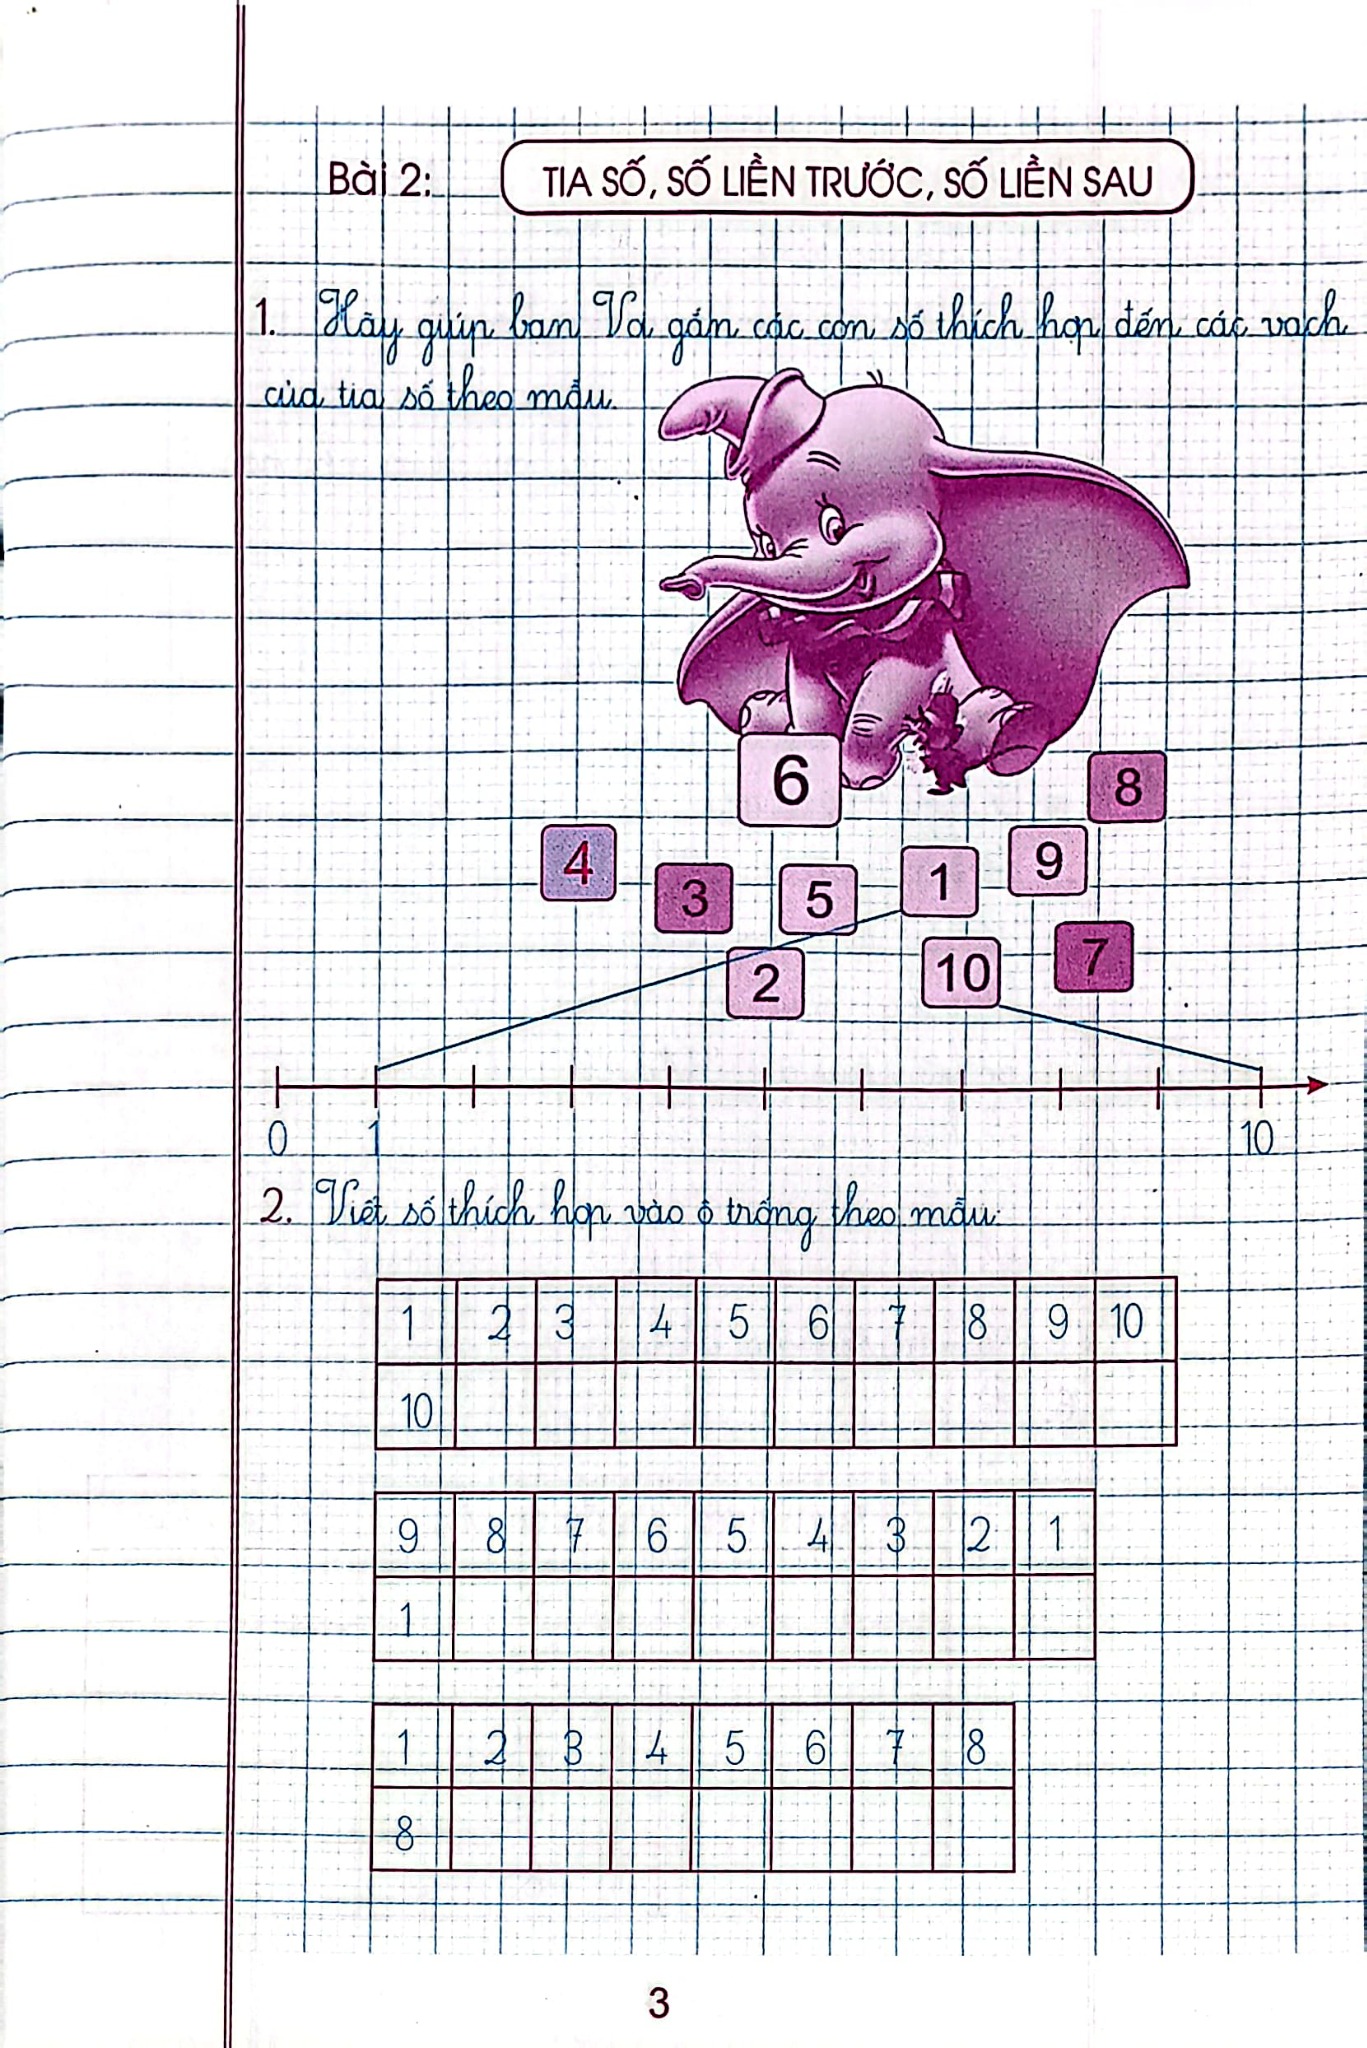 Bài 2: TIA SỐ, SỐ LIỀN TRƯỚC, SỐ LIỀN SAU
1. Hãy giúp bạn Voi gắn các con số thích hợp đến các vạch
của tia số theo mẫu.
6
8
4 3 5 1 9
2 10 7
0 1 10
2. Viết số thích hợp vào ô trống theo mẫu:
1 2 3 4 5 6 7 8 9 10
10
9 8 7 6 5 4 3 2 1
1
1 2 3 4 5 6 7 8
8
3